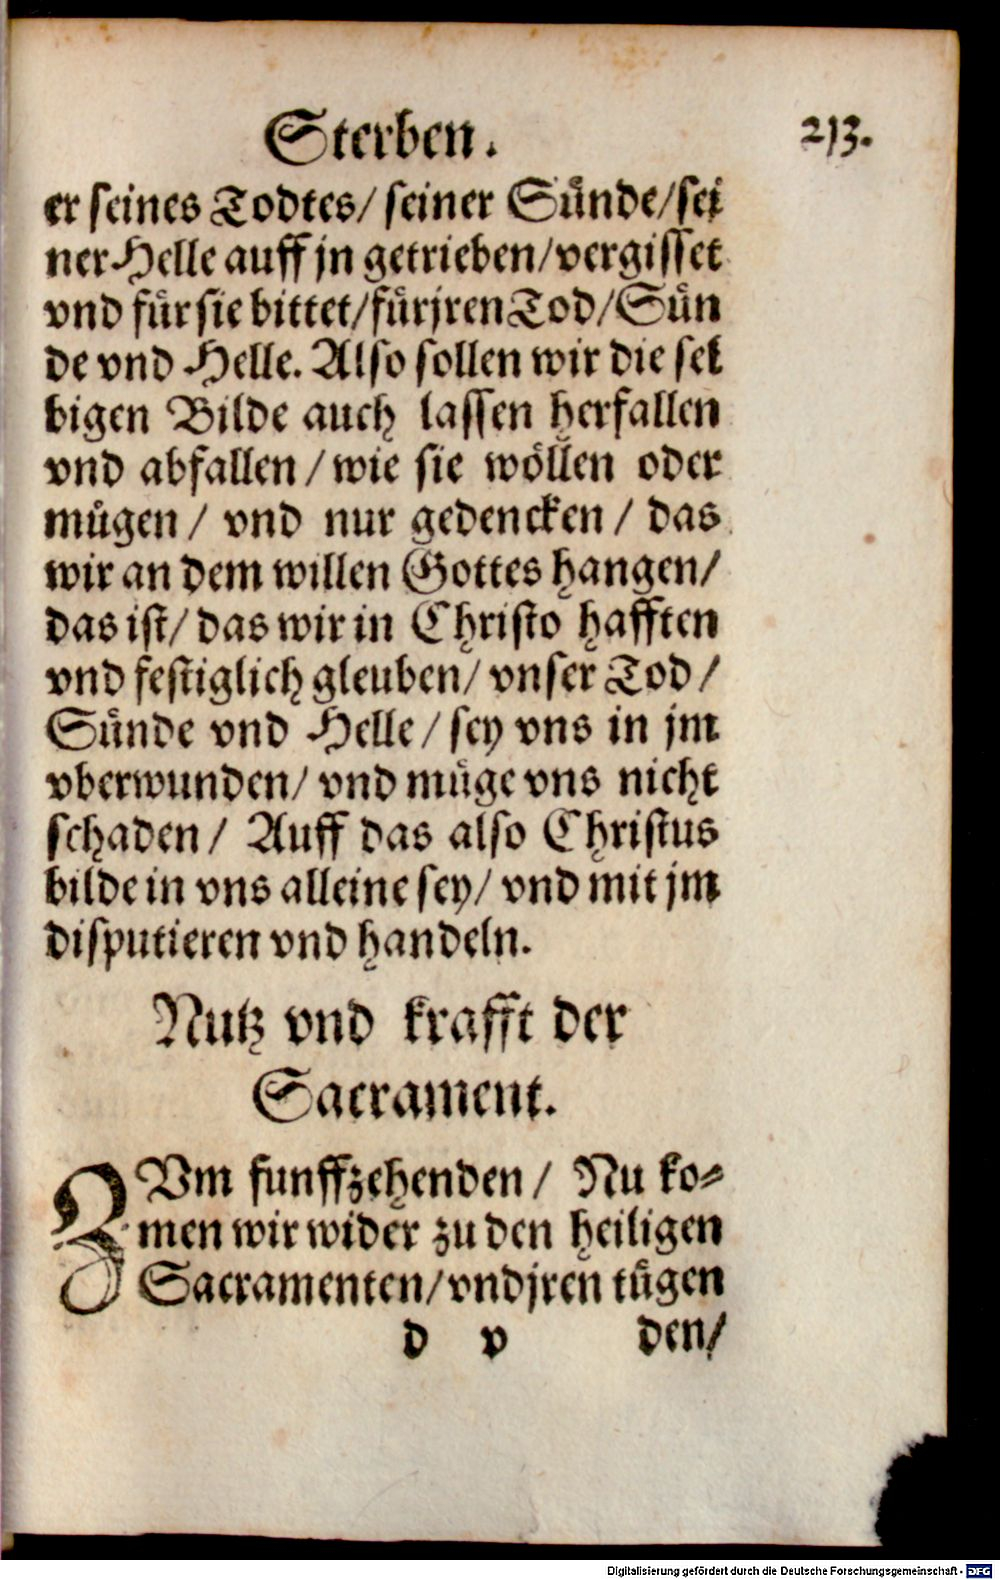 Sterben. 213.
er seines Todtes/ seiner Sünde/sei
ner Helle auff jn getrieben/vergisset
vnd für sie bittet/für jren Tod/Sün
de vnd Helle. Also sollen wir die sel
bigen Bilde auch lassen herfallen
vnd abfallen/ wie sie wöllen oder
mügen/ vnd nur gedencken/ das
wir an dem willen Gottes hangen/
das ist/ das wir in Christo hafften
vnd festiglich gleuben/ vnser Tod/
Sünde vnd Helle/ sey vns in jm
vberwunden/ vnd müge vns nicht
schaden/ Auff das also Christus
bilde in vns alleine sey/ vnd mit jm
disputieren vnd handeln.
Nutz vnd krafft der
Sacrament.
ZVm funffzehenden/ Nu ko-
men wir wider zu den heiligen
Sacramenten/vnd jren tügen
d v den/
Digitalisierung gefördert durch die Deutsche Forschungsgemeinschaft - DFG